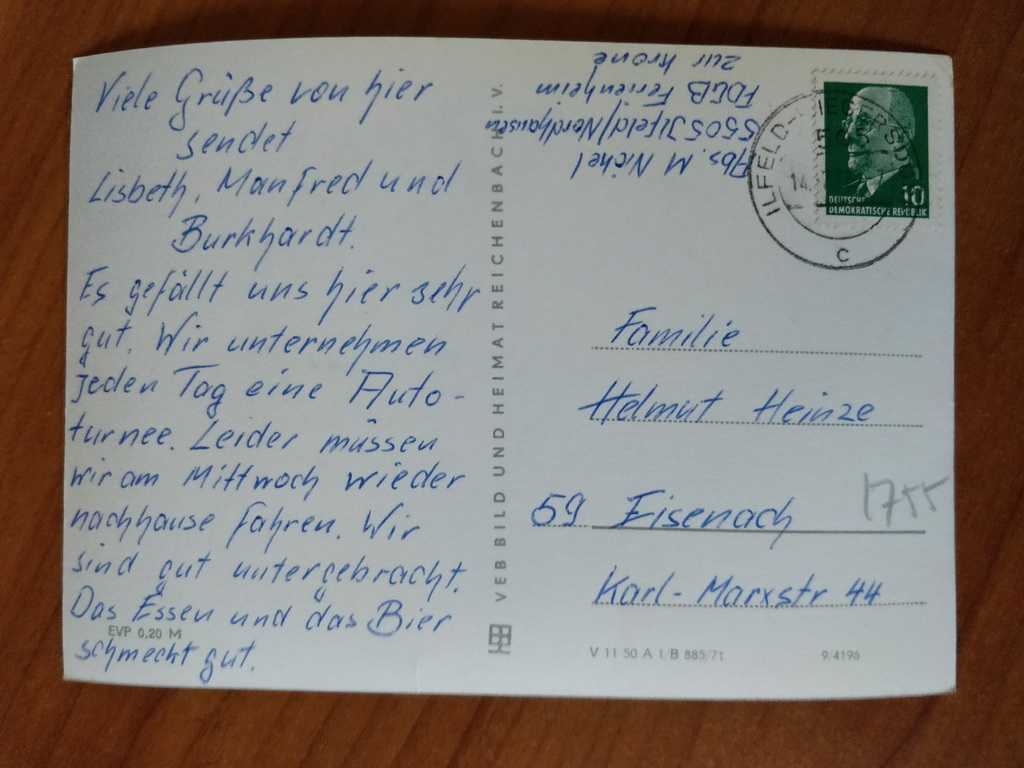 Viele Grüße von hier
sendet
Lisbeth, Manfred und
Burkhardt.
Es gefällt uns hier sehr
gut. Wir unternehmen
jeden Tag eine Auto-
turnee. Leider müssen
wir am Mittwoch wieder
nachhause fahren. Wir
sind gut untergebracht.
Das Essen und das Bier
schmeckt gut.
EVP 0,20 M
VEB BILD UND HEIMAT REICHENBACH I. V.
Abs. M Nickel
5505 Jlfeld/Nordhausen
FDGB Ferienheim
zur Krone
ILFELD-
14.
C
10
DEUTSCHE
DEMOKRATISCHE REPUBLIK
Familie
Helmut Heinze
59 Eisenach
1755
Karl-Marxstr 44
V 11 50 A 1/B 885/71
9/4196